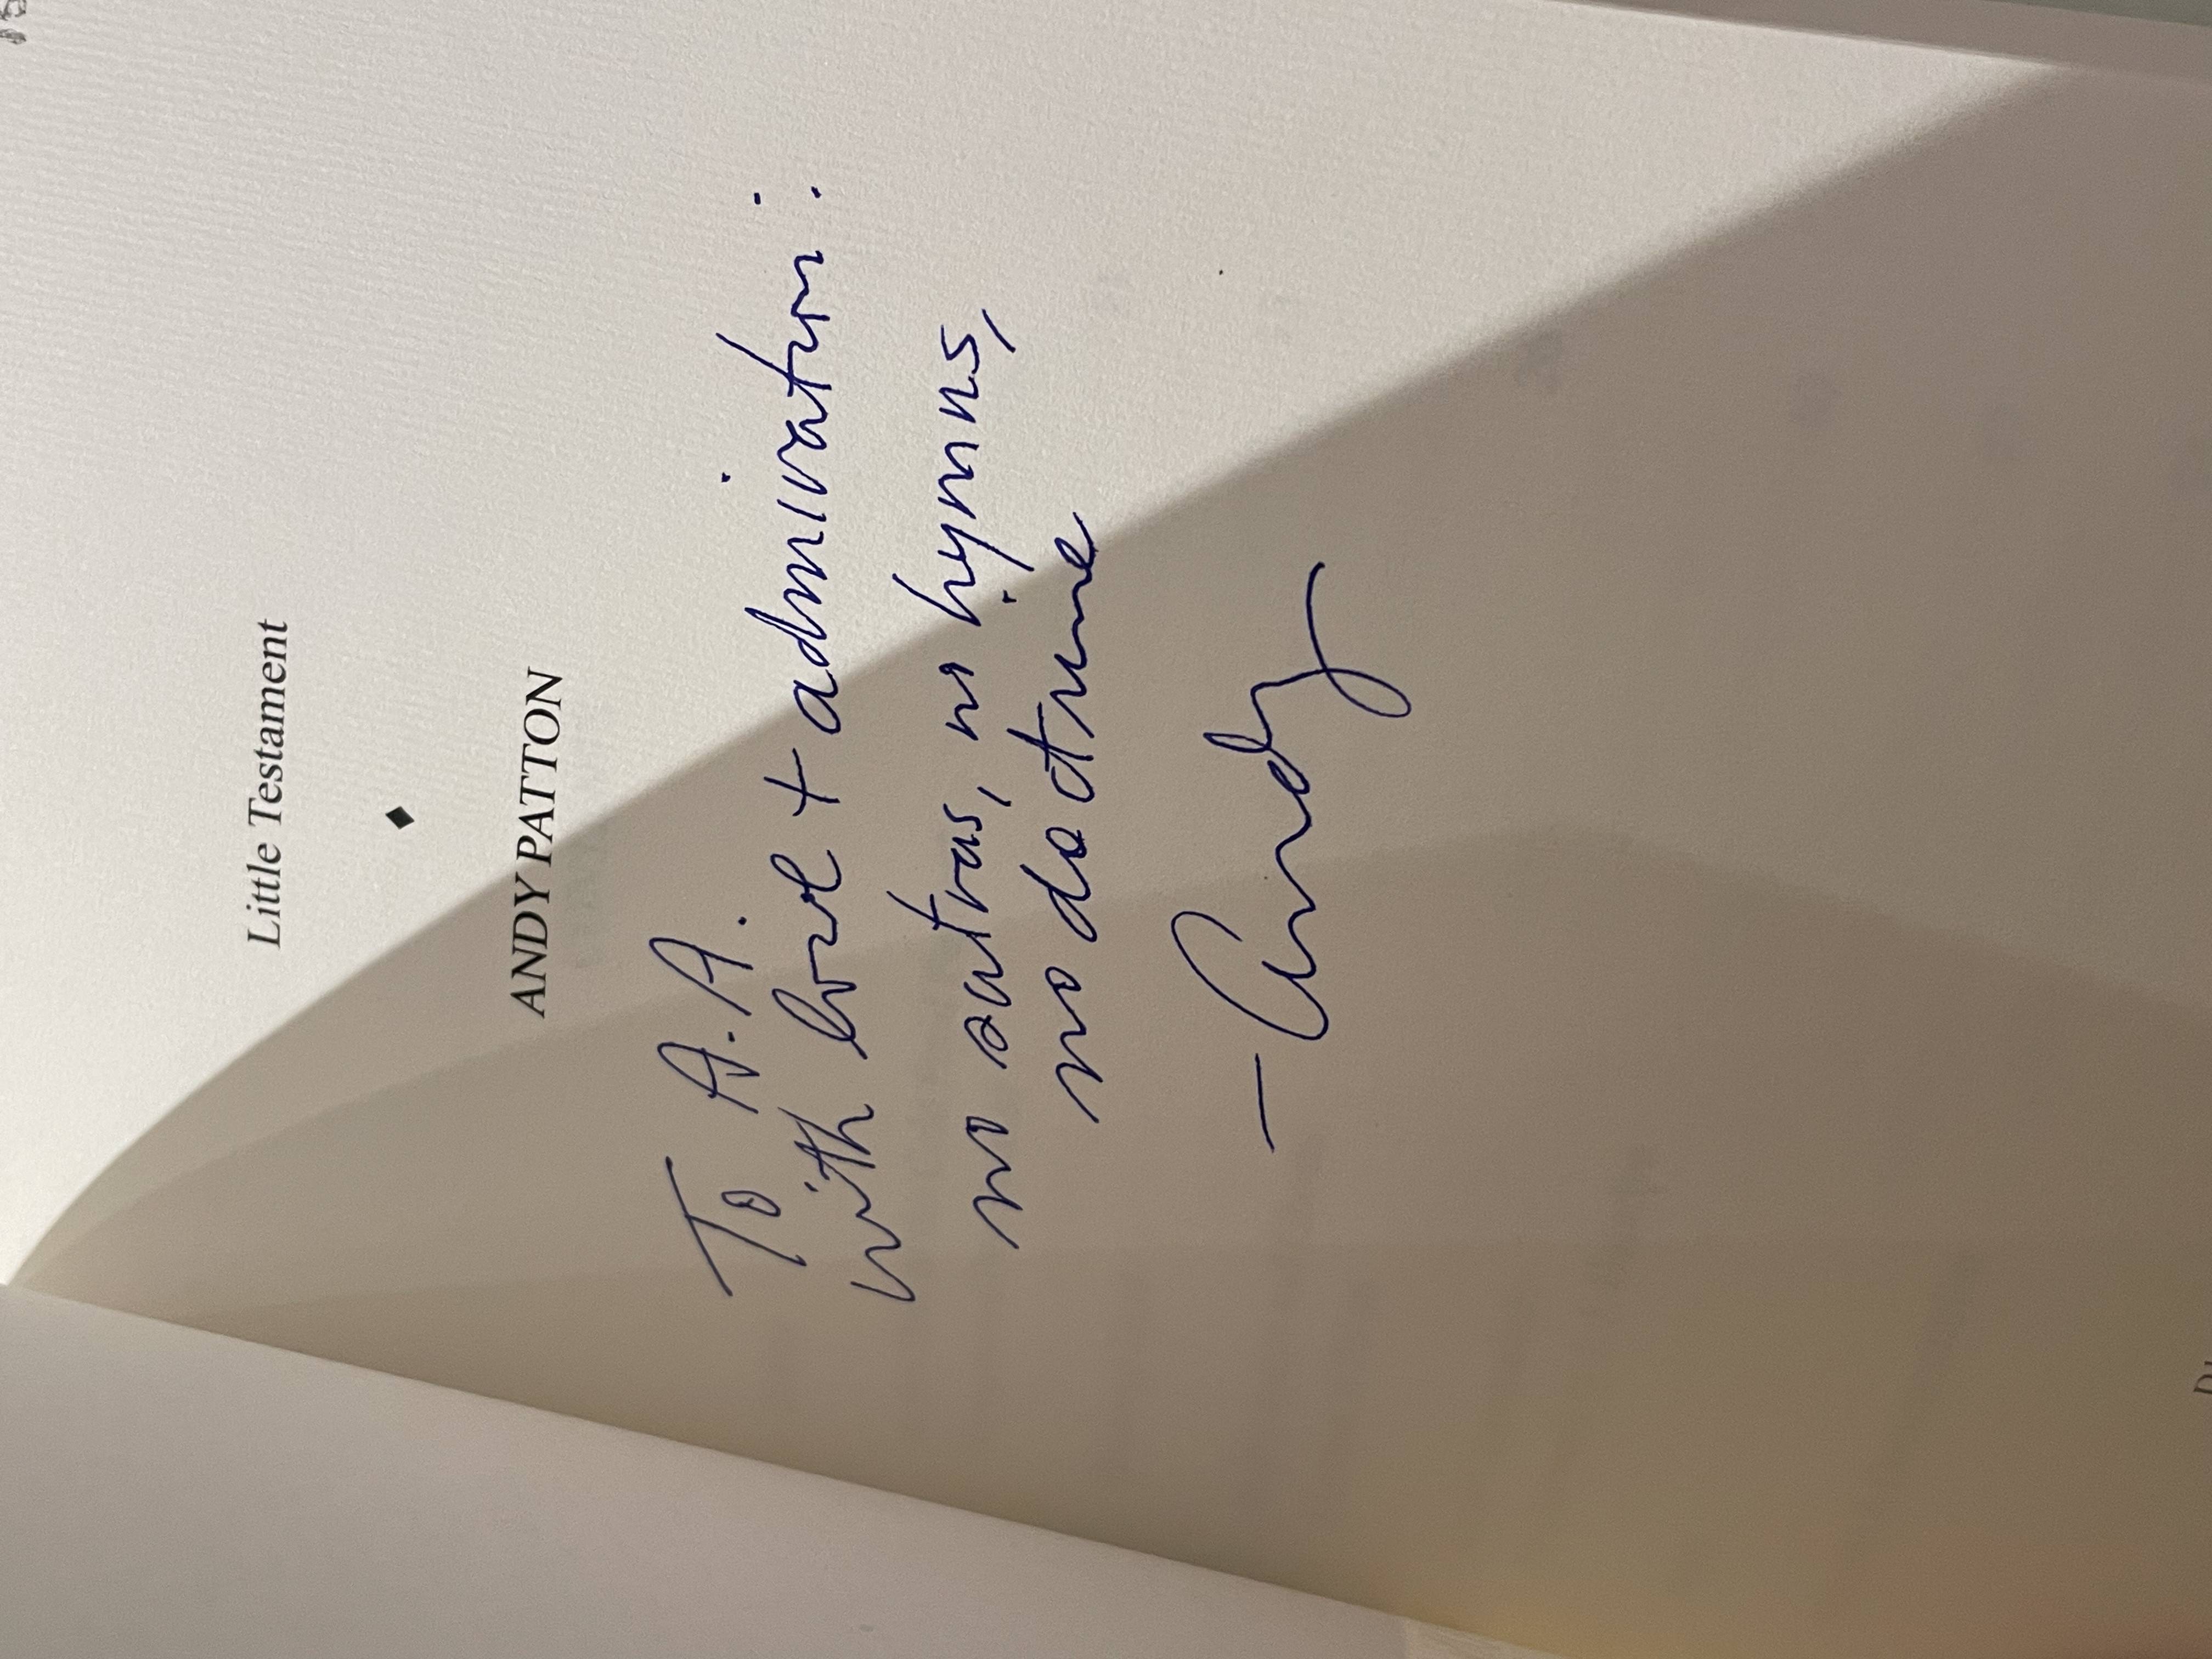 Little Testament
♦
ANDY PATTON
To A.A.
with love + admiration:
no sutras, no hymns,
no doctrine
— Andy